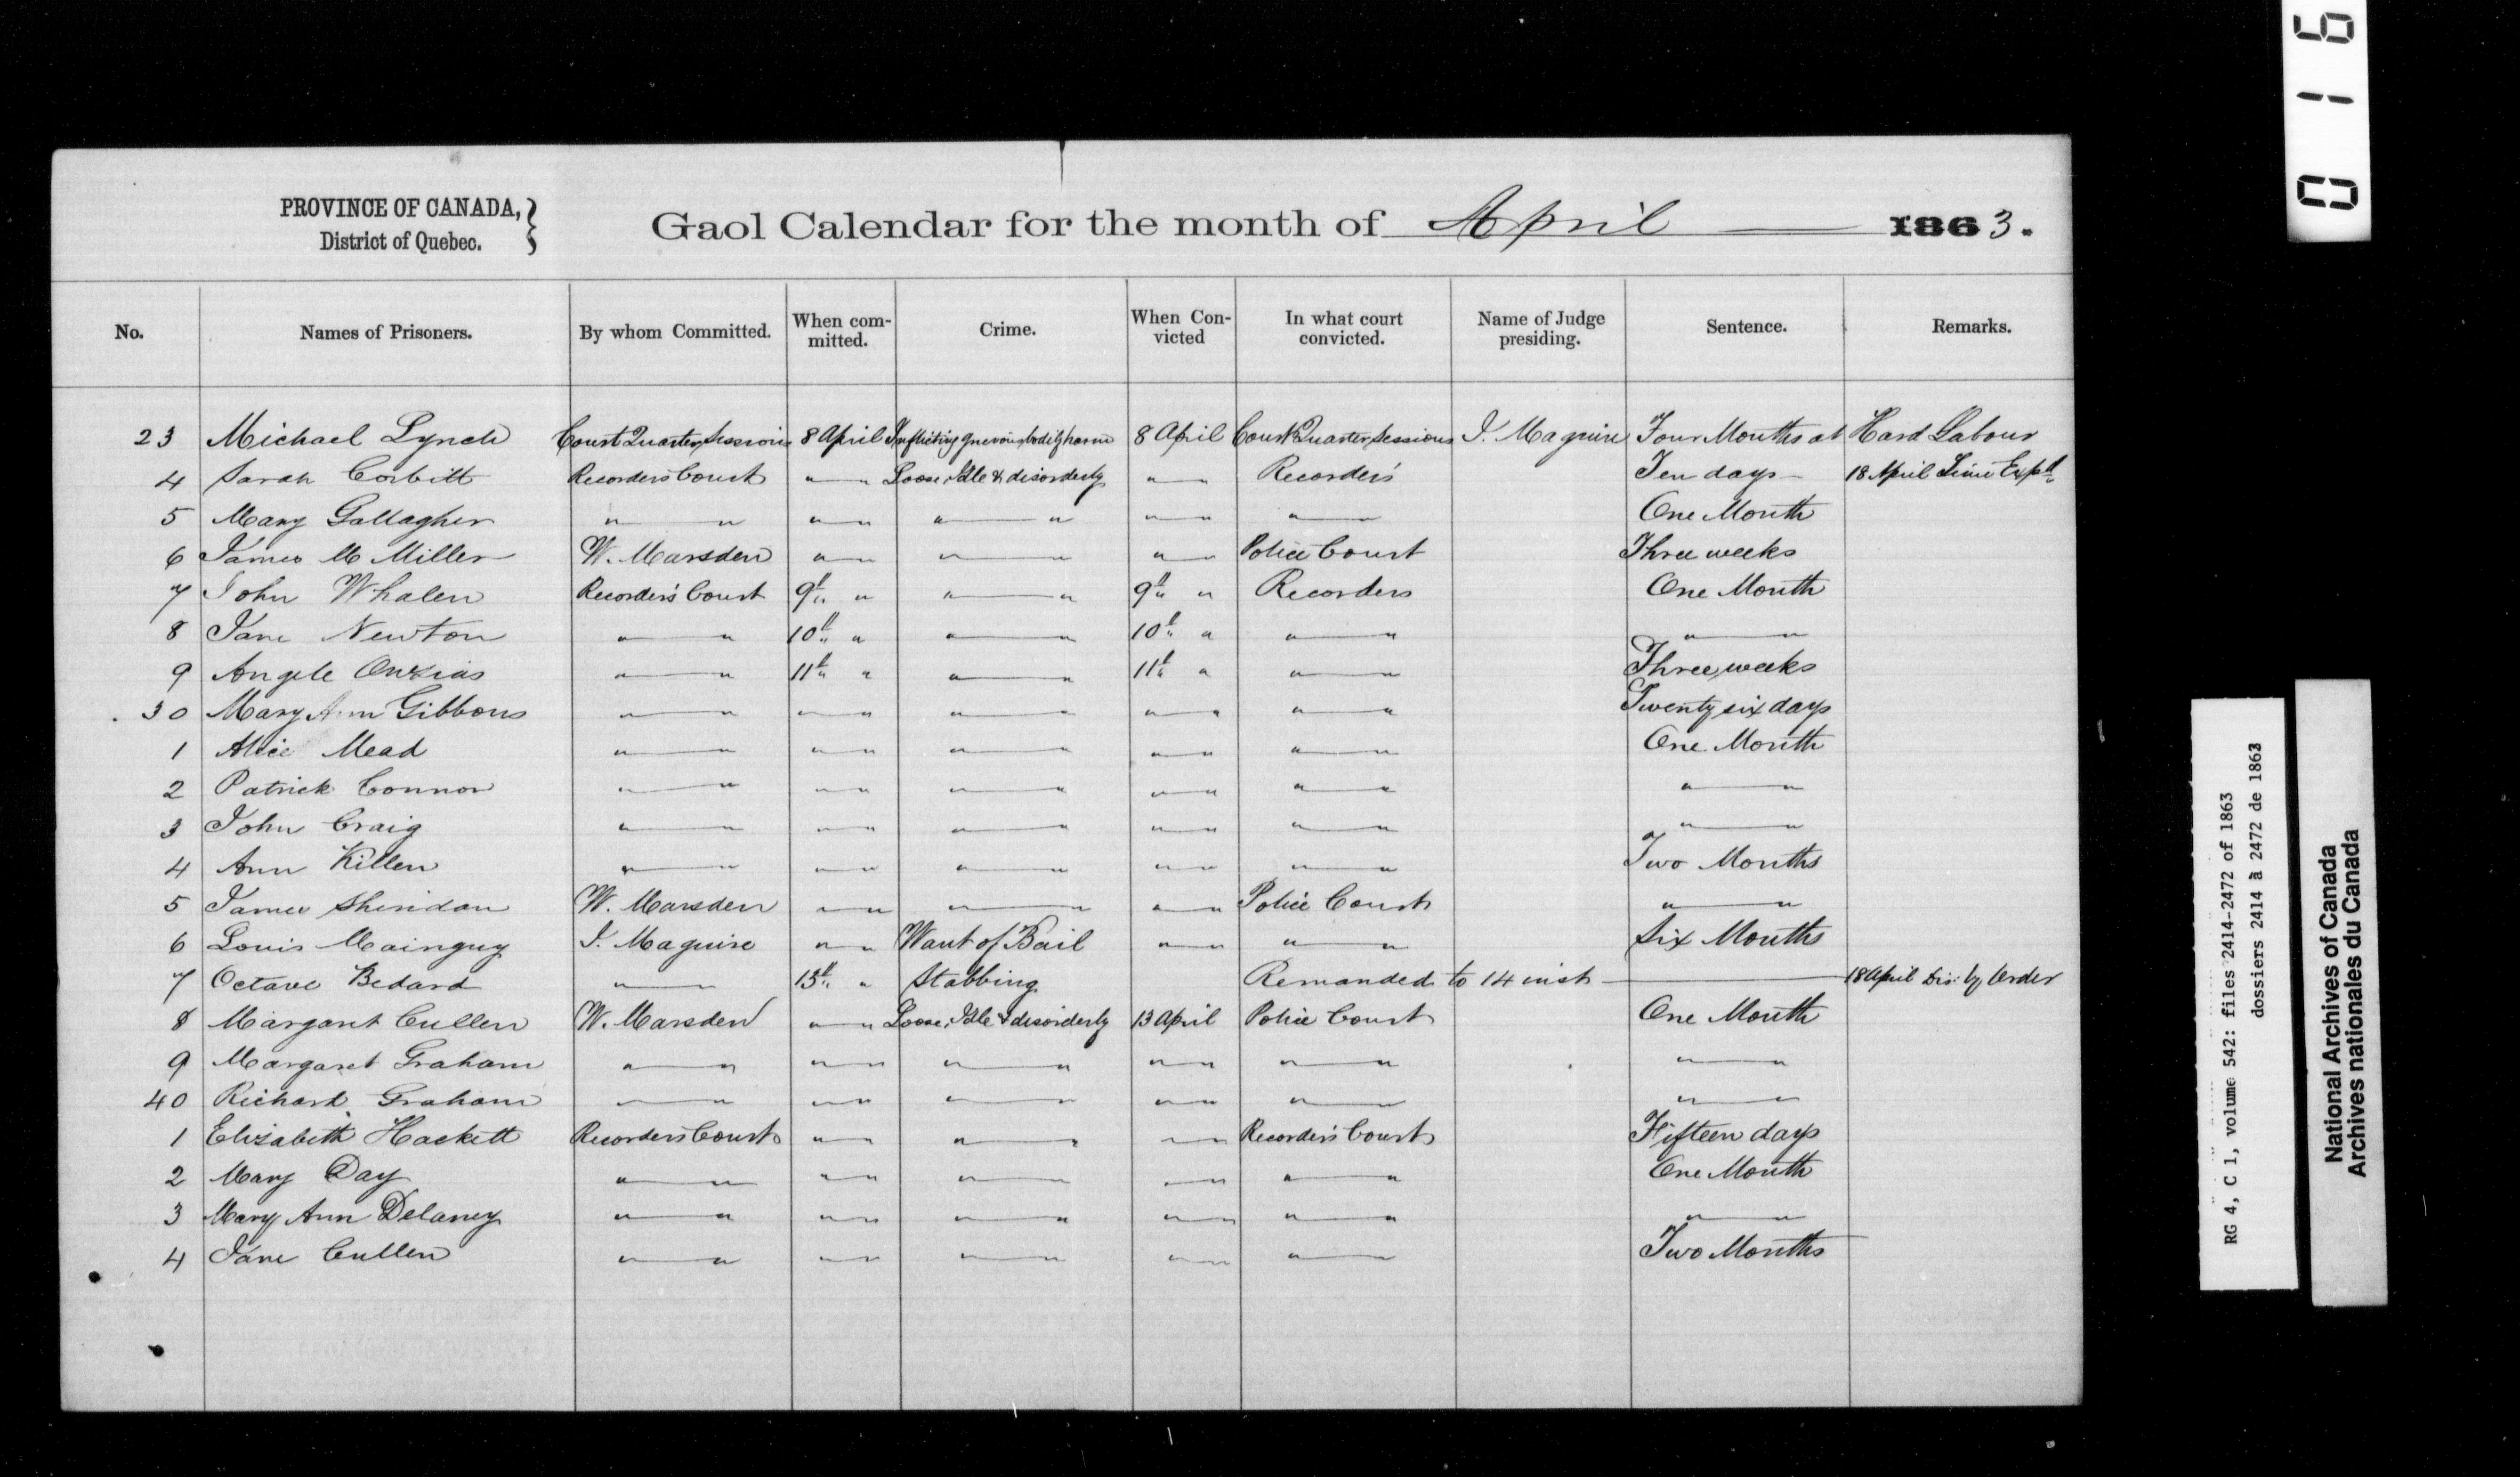 0 1 6
PROVINCE OF CANADA,
District of Quebec.
Gaol Calendar for the month of April 1863.
No. Names of Prisoners. By whom Committed. When com-mitted. Crime. When Con-victed In what court convicted. Name of Judge presiding. Sentence. Remarks.
23 Michael Lynch Court Quarter Sessions 8 April Inflicting grievous bodily harm 8 April Court Quarter Sessions J. Maguire Four Months at Hard Labour
4 Sarah Corbitt Recorder's Court " " Loose, Idle & disorderly " " Recorders' Ten days 18 April Time Expd
5 Mary Gallagher " " " " " " " " " One Month
6 James Mc Miller W. Marsden " " " " " " Police Court Three weeks
7 John Whalen Recorder's Court 9th " " " 9th " Recorders One Month
8 Jane Newton " " 10th " " " 10th " " " " "
9 Angele " " 11th " " " 11th " " " Three weeks
30 Mary Ann Gibbons " " " " " " " " " " Twenty six days
1 Alice Mead " " " " " " " " " " One Month
2 Patrick Connor " " " " " " " " " " " "
3 John Craig " " " " " " " " " " " "
4 Ann Killen " " " " " " " " " " Two Months
5 James Sheridan W. Marsden " " " " " " Police Court " "
6 Louis Mainguy J. Maguire " " Want of Bail " " " " Six Months
7 Octave Bedard " " 13th " Stabbing Remanded to 14 inst 18 April Dis: by Order
8 Margaret Cullen W. Marsden " " Loose, Idle & disorderly 13 April Police Court One Month
9 Margaret Graham " " " " " " " " " " " "
40 Richard Graham " " " " " " " " " " " "
1 Elizabeth Hackett Recorder's Court " " " " " " Recorder's Court Fifteen days
2 Mary Day " " " " " " " " " " One Month
3 Mary Ann Delaney " " " " " " " " " " " "
4 Jane Cullen " " " " " " " " " " Two Months
RG 4, C 1, volume 542: files 2414-2472 of 1863
dossiers 2414 à 2472 de 1863
National Archives of Canada
Archives nationales du Canada